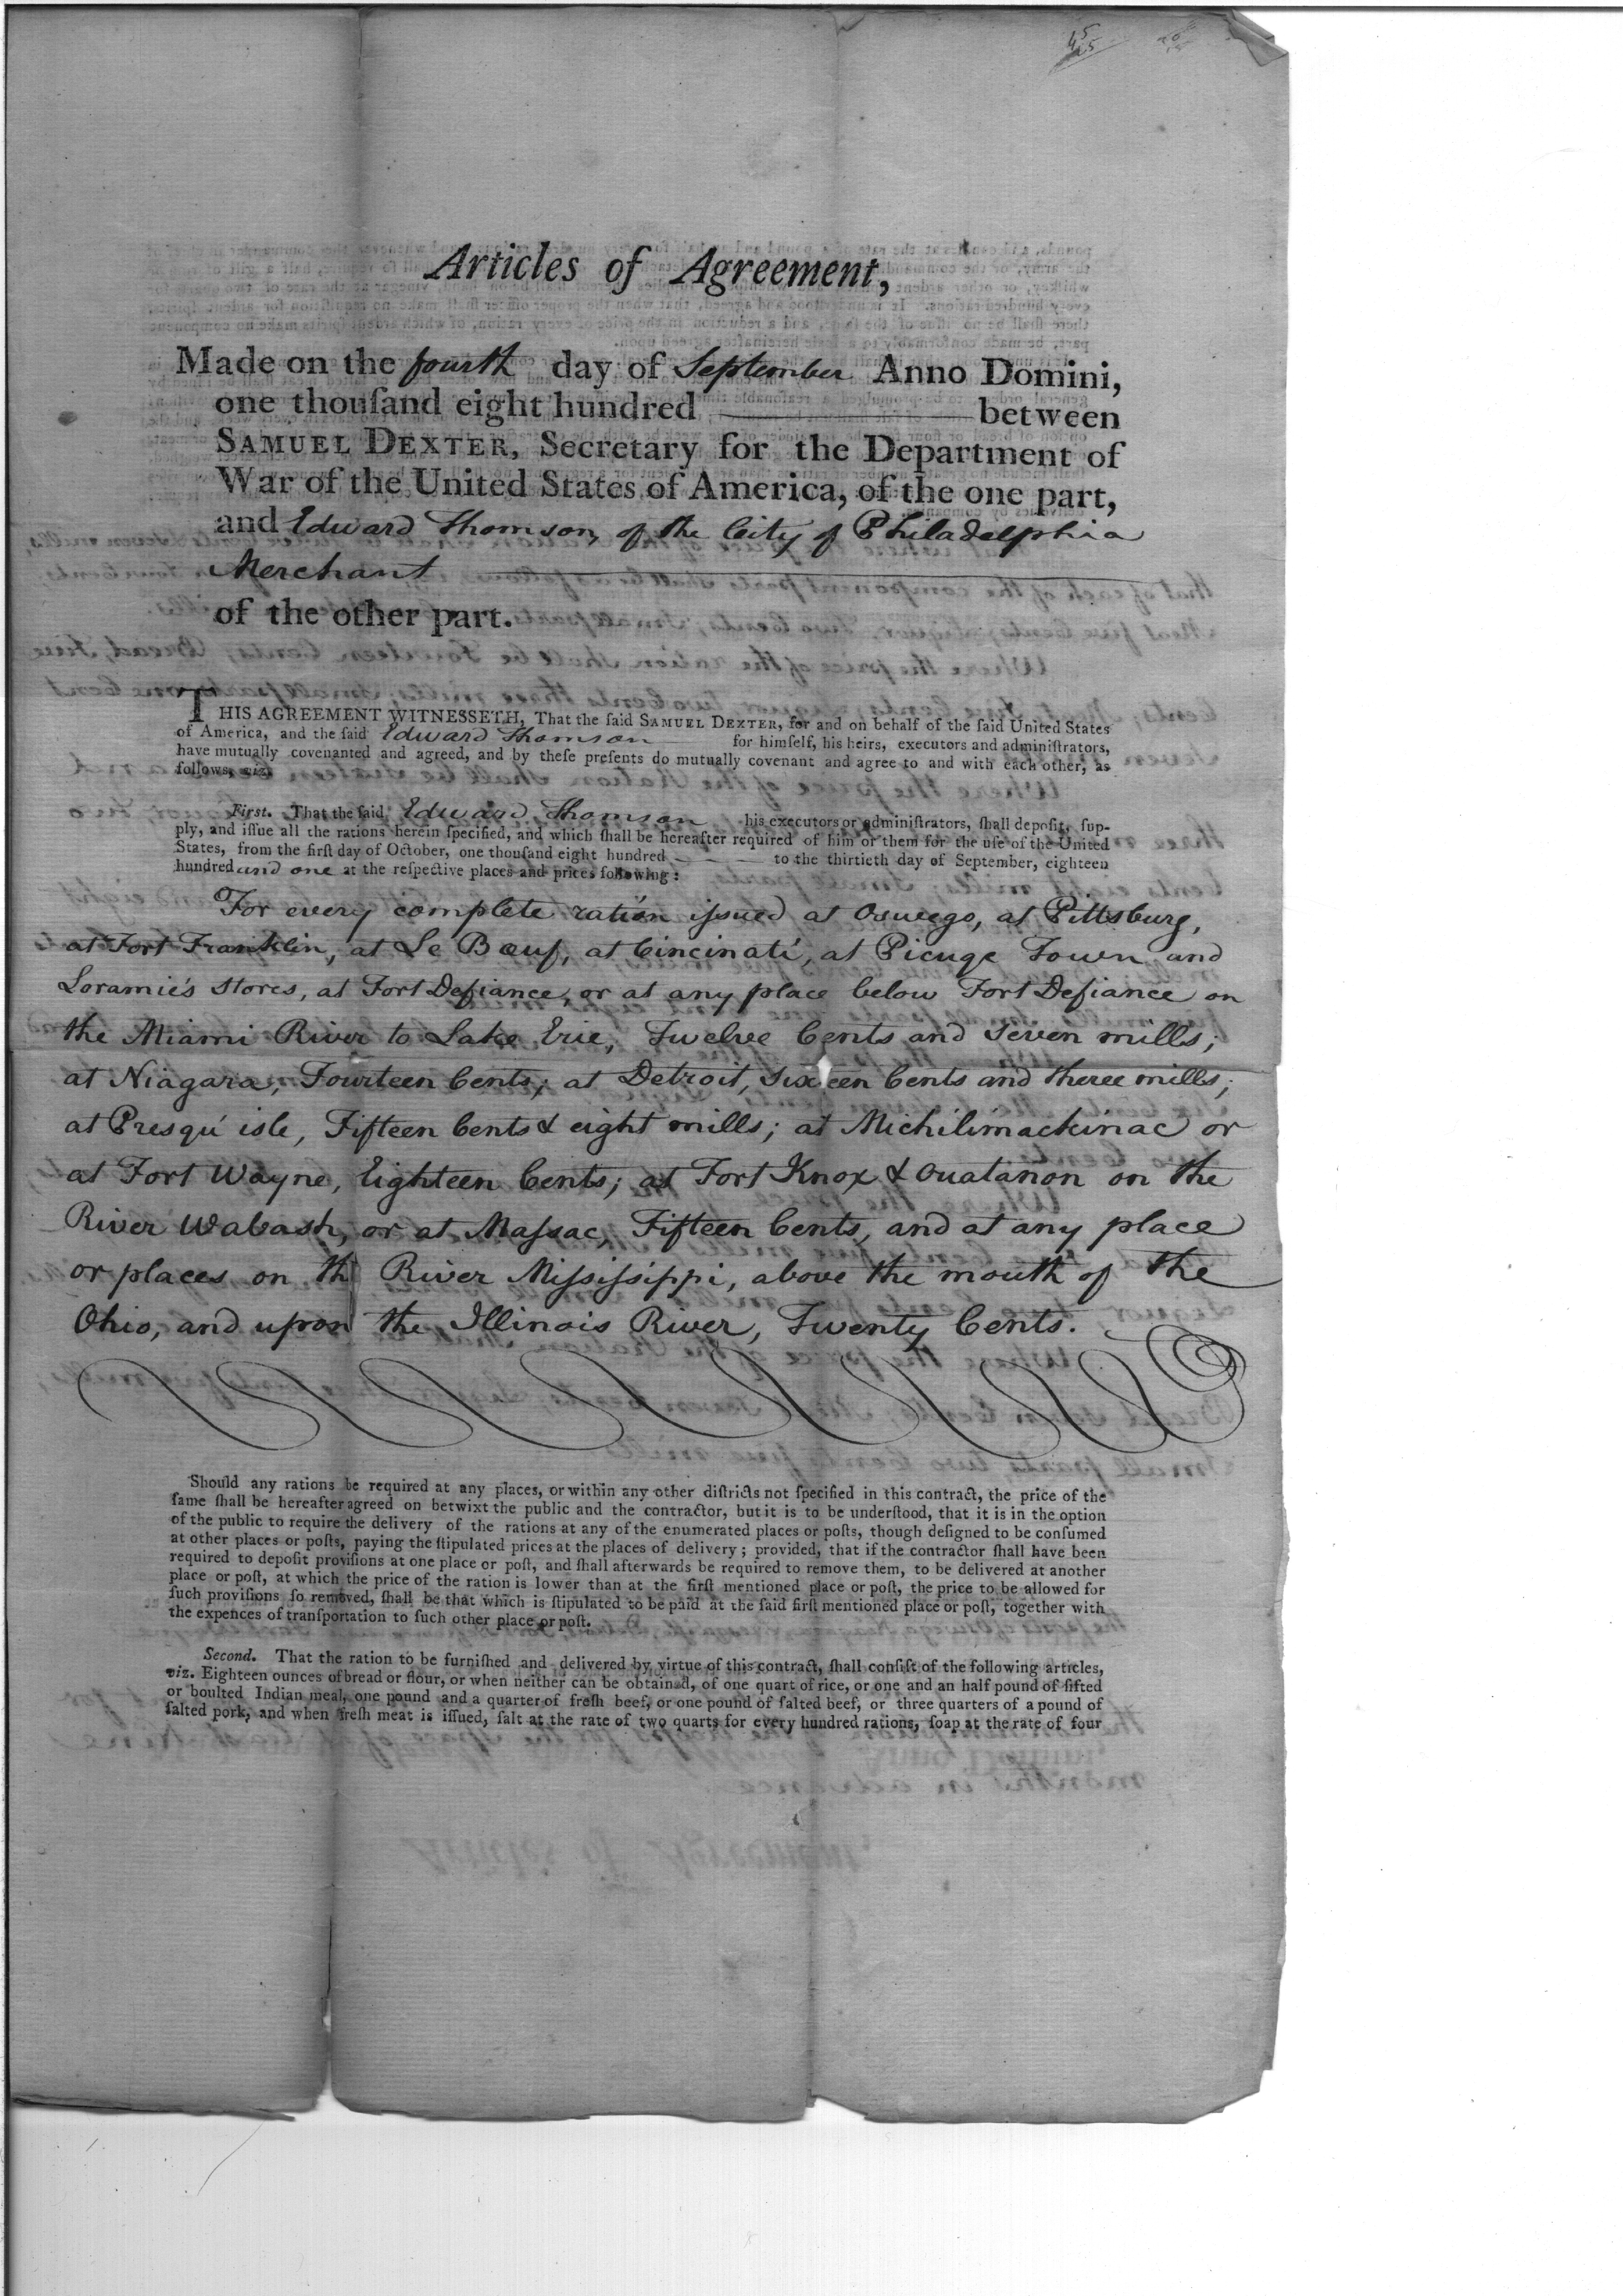 Articles of Agreement,
Made on the fourth day of September Anno Domini,
one thouſand eight hundred ——— between
SAMUEL DEXTER, Secretary for the Department of
War of the United States of America, of the one part,
and Edward Thomson, of the City of Philadelphia
Merchant
of the other part.
THIS AGREEMENT WITNESSETH, That the ſaid SAMUEL DEXTER, for and on behalf of the ſaid United States
of America, and the ſaid Edward Thomson for himſelf, his heirs, executors and adminiſtrators,
have mutually covenanted and agreed, and by theſe preſents do mutually covenant and agree to and with each other, as
follows, viz.
Firſt. That the ſaid Edward Thomson his executors or adminiſtrators, ſhall depoſit, ſup-
ply, and iſſue all the rations herein ſpecified, and which ſhall be hereafter required of him or them for the uſe of the United
States, from the firſt day of October, one thouſand eight hundred ——— to the thirtieth day of September, eighteen
hundred and one at the reſpective places and prices following:
For every complete ration iſsued at Oswego, at Pittsburg,
at Fort Franklin, at Le Bœuf, at Cincinati, at Picuge Town and
Loramie's stores, at Fort Defiance, or at any place below Fort Defiance on
the Miami River to Lake Erie, Twelve Cents and Seven mills;
at Niagara, Fourteen Cents; at Detroit, Sixteen Cents and three mills;
at Presqu' isle, Fifteen Cents & eight mills; at Michilimackinac or
at Fort Wayne, Eighteen Cents; at Fort Knox & Ouatanon on the
River Wabash, or at Maſsac, Fifteen Cents, and at any place
or places on the River Miſsiſsippi, above the mouth of the
Ohio, and upon the Illinois River, Twenty Cents.
Should any rations be required at any places, or within any other diſtricts not ſpecified in this contract, the price of the
ſame ſhall be hereafter agreed on betwixt the public and the contractor, but it is to be underſtood, that it is in the option
of the public to require the delivery of the rations at any of the enumerated places or poſts, though deſigned to be conſumed
at other places or poſts, paying the ſtipulated prices at the places of delivery; provided, that if the contractor ſhall have been
required to depoſit proviſions at one place or poſt, and ſhall afterwards be required to remove them, to be delivered at another
place or poſt, at which the price of the ration is lower than at the firſt mentioned place or poſt, the price to be allowed for
ſuch proviſions ſo removed, ſhall be that which is ſtipulated to be paid at the ſaid firſt mentioned place or poſt, together with
the expences of tranſportation to ſuch other place or poſt.
Second. That the ration to be furniſhed and delivered by virtue of this contract, ſhall conſiſt of the following articles,
viz. Eighteen ounces of bread or flour, or when neither can be obtained, of one quart of rice, or one and an half pound of ſifted
or boulted Indian meal, one pound and a quarter of freſh beef, or one pound of ſalted beef, or three quarters of a pound of
ſalted pork, and when freſh meat is iſſued, ſalt at the rate of two quarts for every hundred rations, ſoap at the rate of four